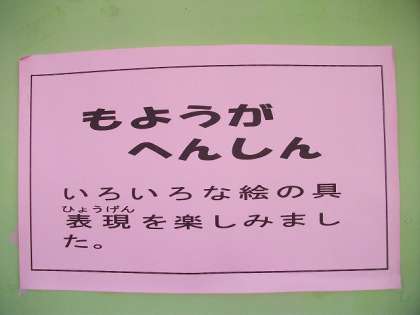 もようが
へんしん
いろいろな絵の具
ひょうげん
表現を楽しみまし
た。